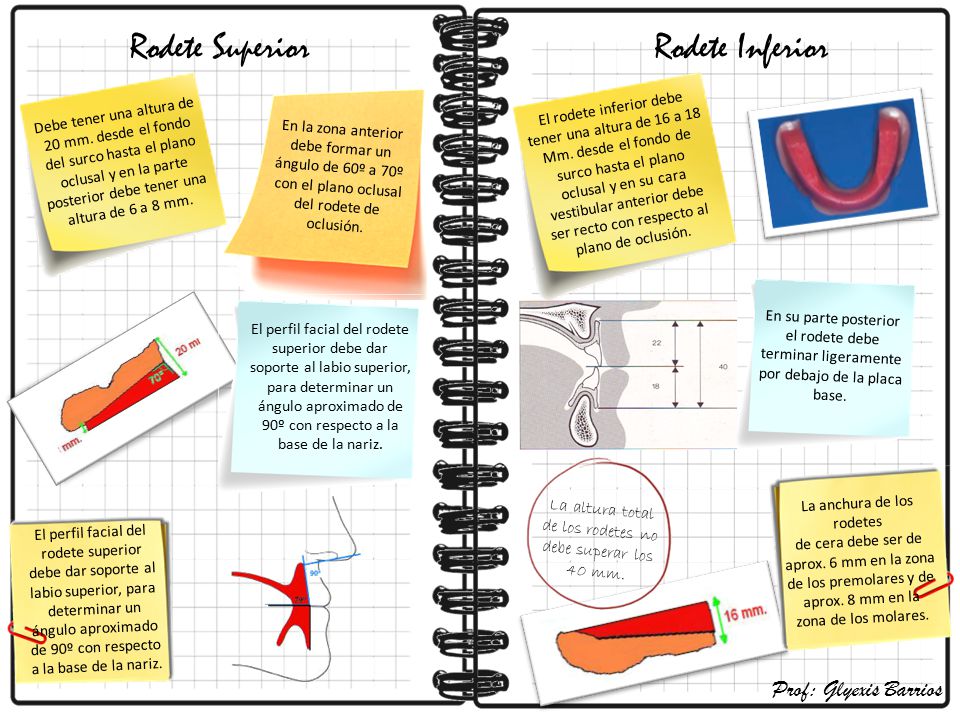 Rodete Superior
Debe tener una altura de
20 mm. desde el fondo
del surco hasta el plano
oclusal y en la parte
posterior debe tener una
altura de 6 a 8 mm.
En la zona anterior
debe formar un
ángulo de 60º a 70º
con el plano oclusal
del rodete de
oclusión.
20 m
70º
mm.
El perfil facial del rodete
superior debe dar
soporte al labio superior,
para determinar un
ángulo aproximado de
90º con respecto a la
base de la nariz.
El perfil facial del
rodete superior
debe dar soporte al
labio superior, para
determinar un
ángulo aproximado
de 90º con respecto
a la base de la nariz.
90º
Rodete Inferior
El rodete inferior debe
tener una altura de 16 a 18
Mm. desde el fondo de
surco hasta el plano
oclusal y en su cara
vestibular anterior debe
ser recto con respecto al
plano de oclusión.
22
40
18
En su parte posterior
el rodete debe
terminar ligeramente
por debajo de la placa
base.
La altura total
de los rodetes no
debe superar los
40 mm.
La anchura de los
rodetes
de cera debe ser de
aprox. 6 mm en la zona
de los premolares y de
aprox. 8 mm en la
zona de los molares.
16 mm.
Prof: Glyexis Barrios